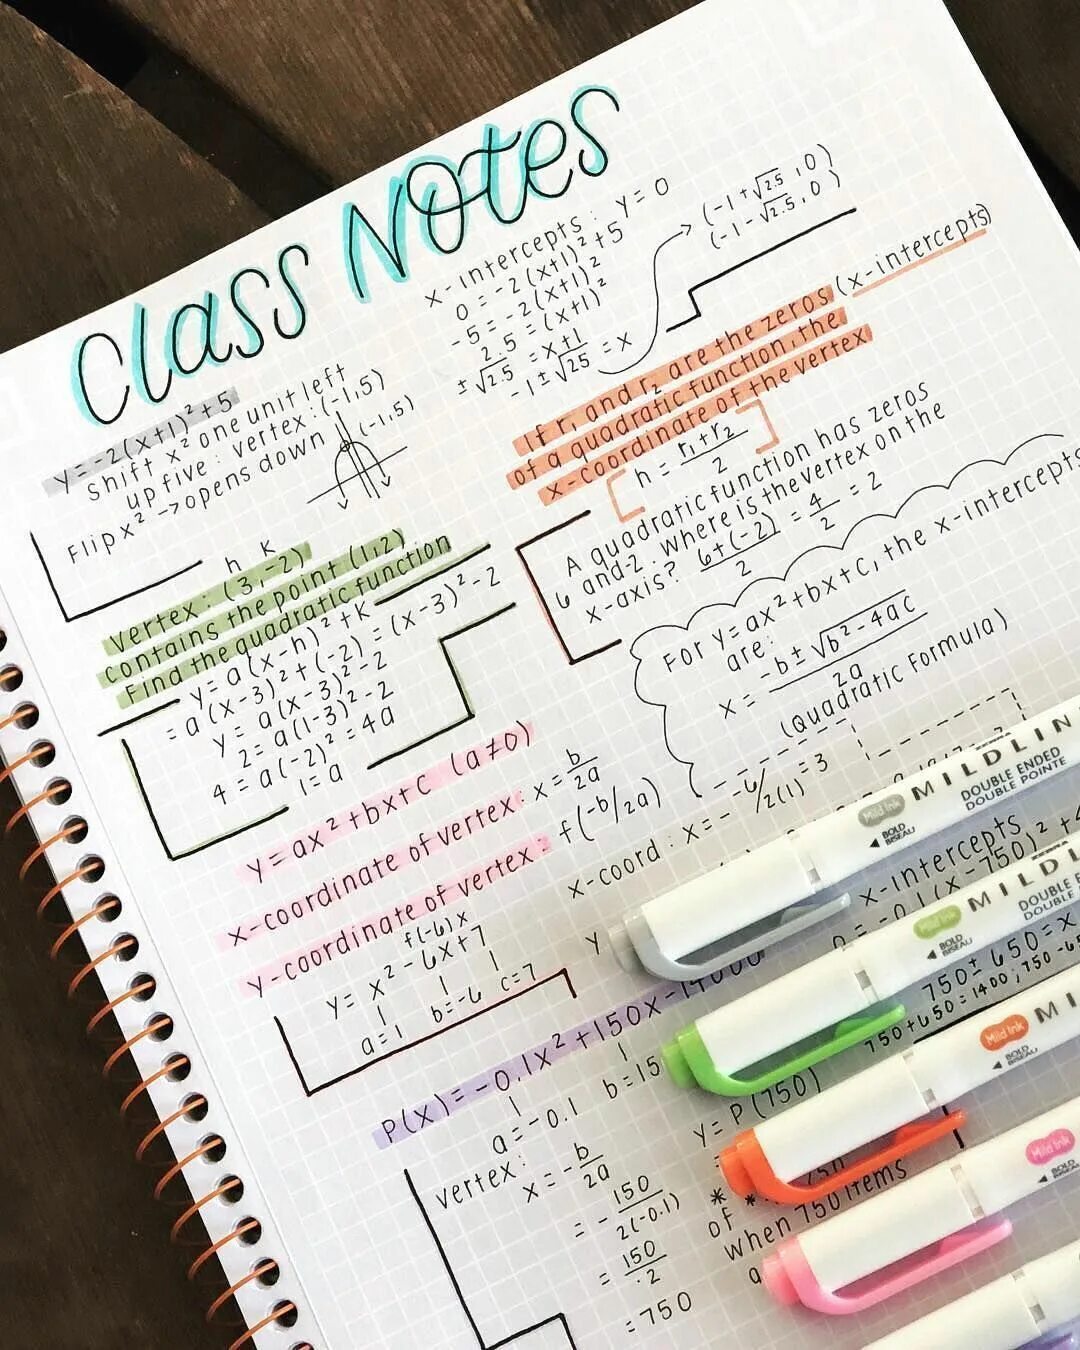 Class Notes
y=-2(x+1)²+5
shift x² one unit left
up five: vertex: (-1,5)
Flip x² → opens down
(-1,5)
x-intercepts: y=0
0=-2(x+1)²+5
-5=-2(x+1)²
2.5=(x+1)²
±√2.5=x+1
-1±√25=x
(-1+√2.5,0)
(-1-√2.5,0)
If r₁ and r₂ are the zeros (x-intercepts)
of a quadratic function, the
x-coordinate of the vertex
h=r₁+r₂/2
A quadratic function has zeros
6 and -2. Where is the vertex on the
x-axis? 6+(-2)/2=4/2=2
h k
Vertex: (3,-2)
contains the point (1,2)
Find the quadratic function
y=a(x-h)²+k
=a(x-3)²+(-2)=(x-3)²-2
y=a(x-3)²-2
2=a(1-3)²-2
4=a(-2)²=4a
1=a
For y=ax²+bx+c, the x-intercepts
are:
x=-b±√b²-4ac/2a
(Quadratic Formula)
y=ax²+bx+c (a≠0)
x-coordinate of vertex: x=b/2a
y-coordinate of vertex: f(-b/2a)
f(-6)x
y=x²-6x+7
a=1 b=-6 c=7
x-coord: x=--6/2(1)=3
y
P(x)=-0.1x²+150x-14000
a=-0.1 b=15
vertex:
x=-b/2a
=-150/2(-0.1)
=150/.2
=750
x-intercepts
0=-0.1(x-750)²+4
750±650=x
750+650=1400; 750-65
y=P(750)
of
when 750 items
a
MILDLIN
DOUBLE ENDED
DOUBLE POINTE
Mild Ink
◀ BOLD
BISEAU
MILDL
DOUBLE E
DOUBLE PO
Mild Ink
◀ BOLD
BISEAU
MI
Mild Ink
◀ BOLD
BISEAU
Mild Ink
◀ BOLD
BISEAU